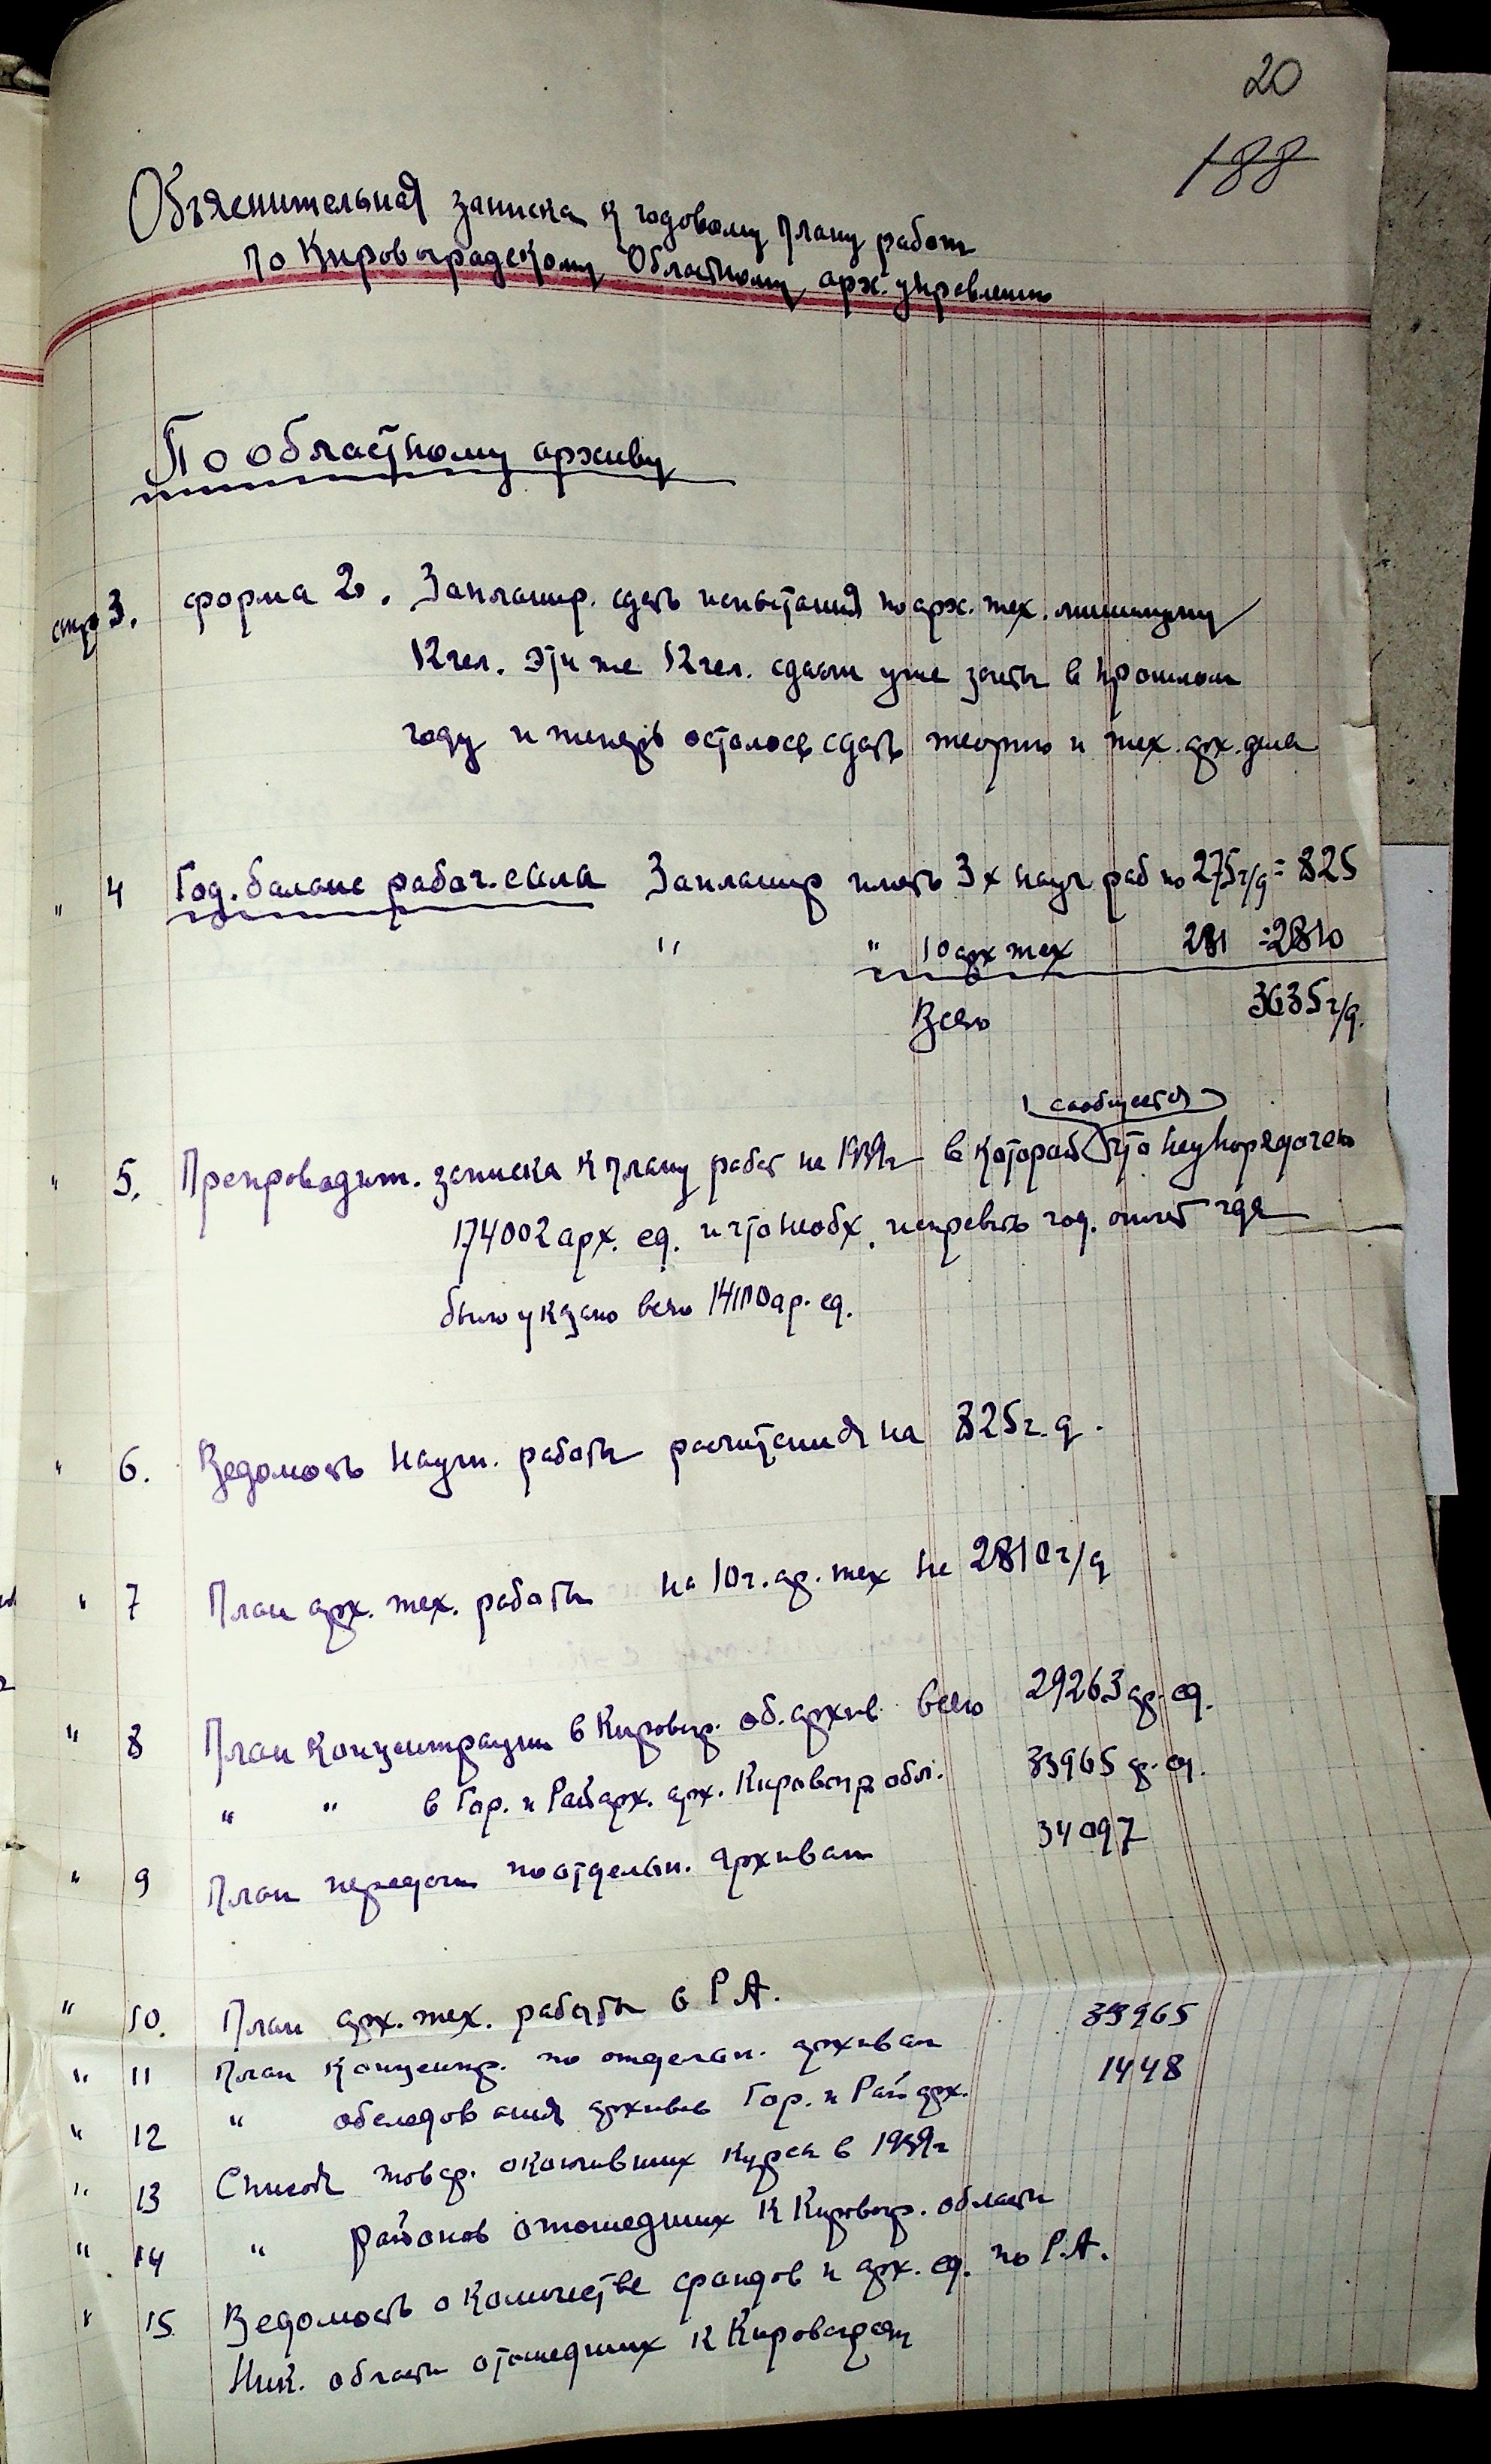 20
188
Объяснительная записка к годовому плану работ
по Кировоградскому Областному арх. управлению
По областному архиву
стр 3. форма 2. Запланир. сдать испытания по арх. тех. минимуму
12 чел. Эти же 12 чел. сдали уже зачеты в прошлом
году и теперь осталось сдать теорию и тех. арх. дела
" 4 Год. баланс рабоч. силы Запланир иметь 3х науч. раб по 275 ч/д = 825
" " 10 арх тех 281 = 2810
Всего 3635 ч/д.
сообщается
" 5. Препроводит. записка к плану работ на 1939г в которой что неупорядочено
174002 арх. ед. и что необх. исправить год. отчет где
было указано всего ар. ед.
" 6. Ведомость научн. работы расчитания на 825 ч. д.
" 7 План арх. тех. работы на 10 ч. ар. тех на 2810 ч/д
" 8 План концентрации в Кировогр. об. архив всего 29263 ар. ед.
" " в Гор. и Райарх. арх. Кировогр обл. 33965 ар. ед.
" 9 План передачи по отдельн. архивам 34097
" 10. План арх. тех. работы в Р.А.
" 11 План концентр. по отдельн. архивам 33965
" 12 " обследования архивов Гор. и Райарх. 1448
" 13 Список товар. окончивших курсы в 1939г
" 14 " районов отошедших к Кировогр. области
" 15 Ведомость о количестве фондов и арх. ед. по Р.А.
Ник. области отошедших к Кировограду